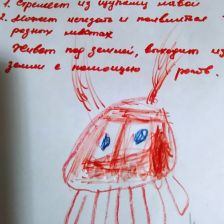 1. Стреляет из щупалец лавой
2. Может исчезать и появляться
разных местах
Живёт под землёй, выходит из
земли с помощью рогов.